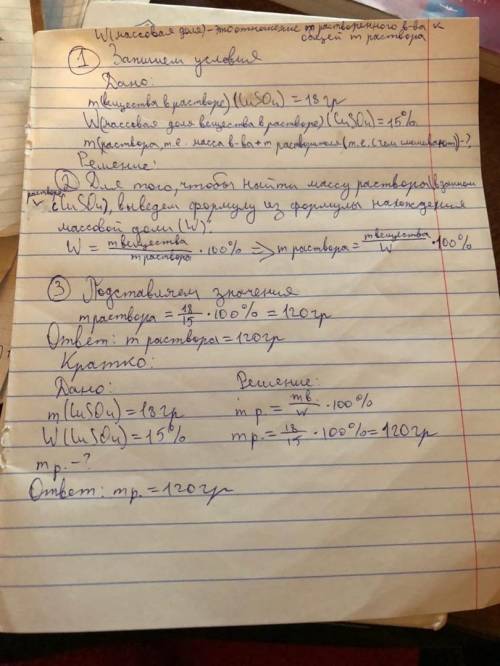 W(массовая доля) - это отношение m растворенного в-ва к
общей m раствора
① Запишем условия
Дано:
m(вещества в растворе)(CuSO₄) = 18 гр
W(массовая доля вещества в растворе)(CuSO₄) = 15%
m(раствора, т.е. масса в-ва + m растворителя (т.е. с чем смешивают)) - ?
Решение:
② Для того, чтобы найти массу раствора (в данном
растворе
CuSO₄), выведем формулу из формулы нахождения
массовой доли (W):
W = m вещества / m раствора · 100% => m раствора = m вещества / W · 100%
③ Подставляем значения
m раствора = 18/15 · 100% = 120 гр
Ответ: m раствора = 120 гр
Кратко:
Дано: Решение:
m(CuSO₄) = 18 гр m р. = mв/W · 100%
W(CuSO₄) = 15% m р. = 18/15 · 100% = 120 гр
m р. - ?
Ответ: m р. = 120 гр